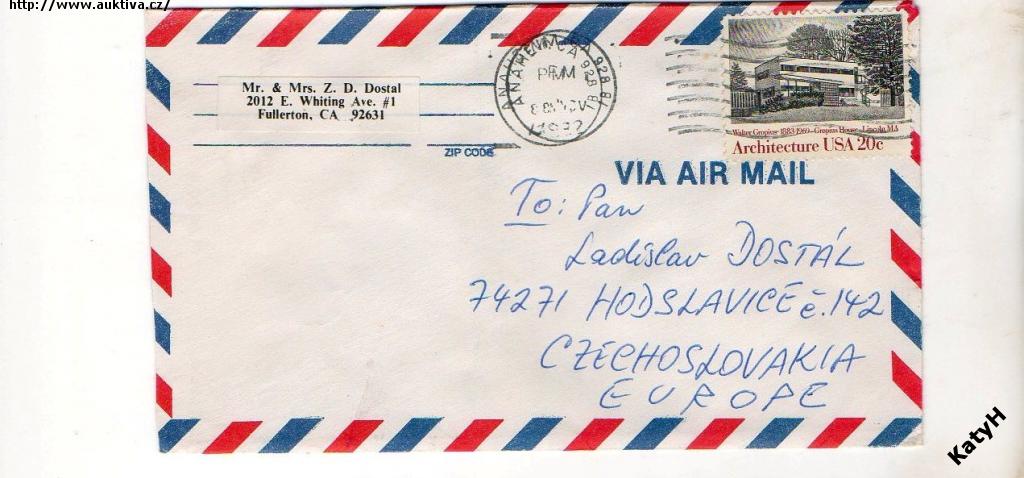 http://www.auktiva.cz/
Mr. & Mrs. Z. D. Dostal
2012 E. Whiting Ave. #1
Fullerton, CA 92631
ZIP CODE
ANAHEIM CA 928
PM
Walter Gropius 1883-1969 Gropius House Lincoln MA
Architecture USA 20c
VIA AIR MAIL
To: Pan
Ladislav DOSTÁL
74271 HODSLAVICE č.142
CZECHOSLOVAKIA
EUROPE
KatyH